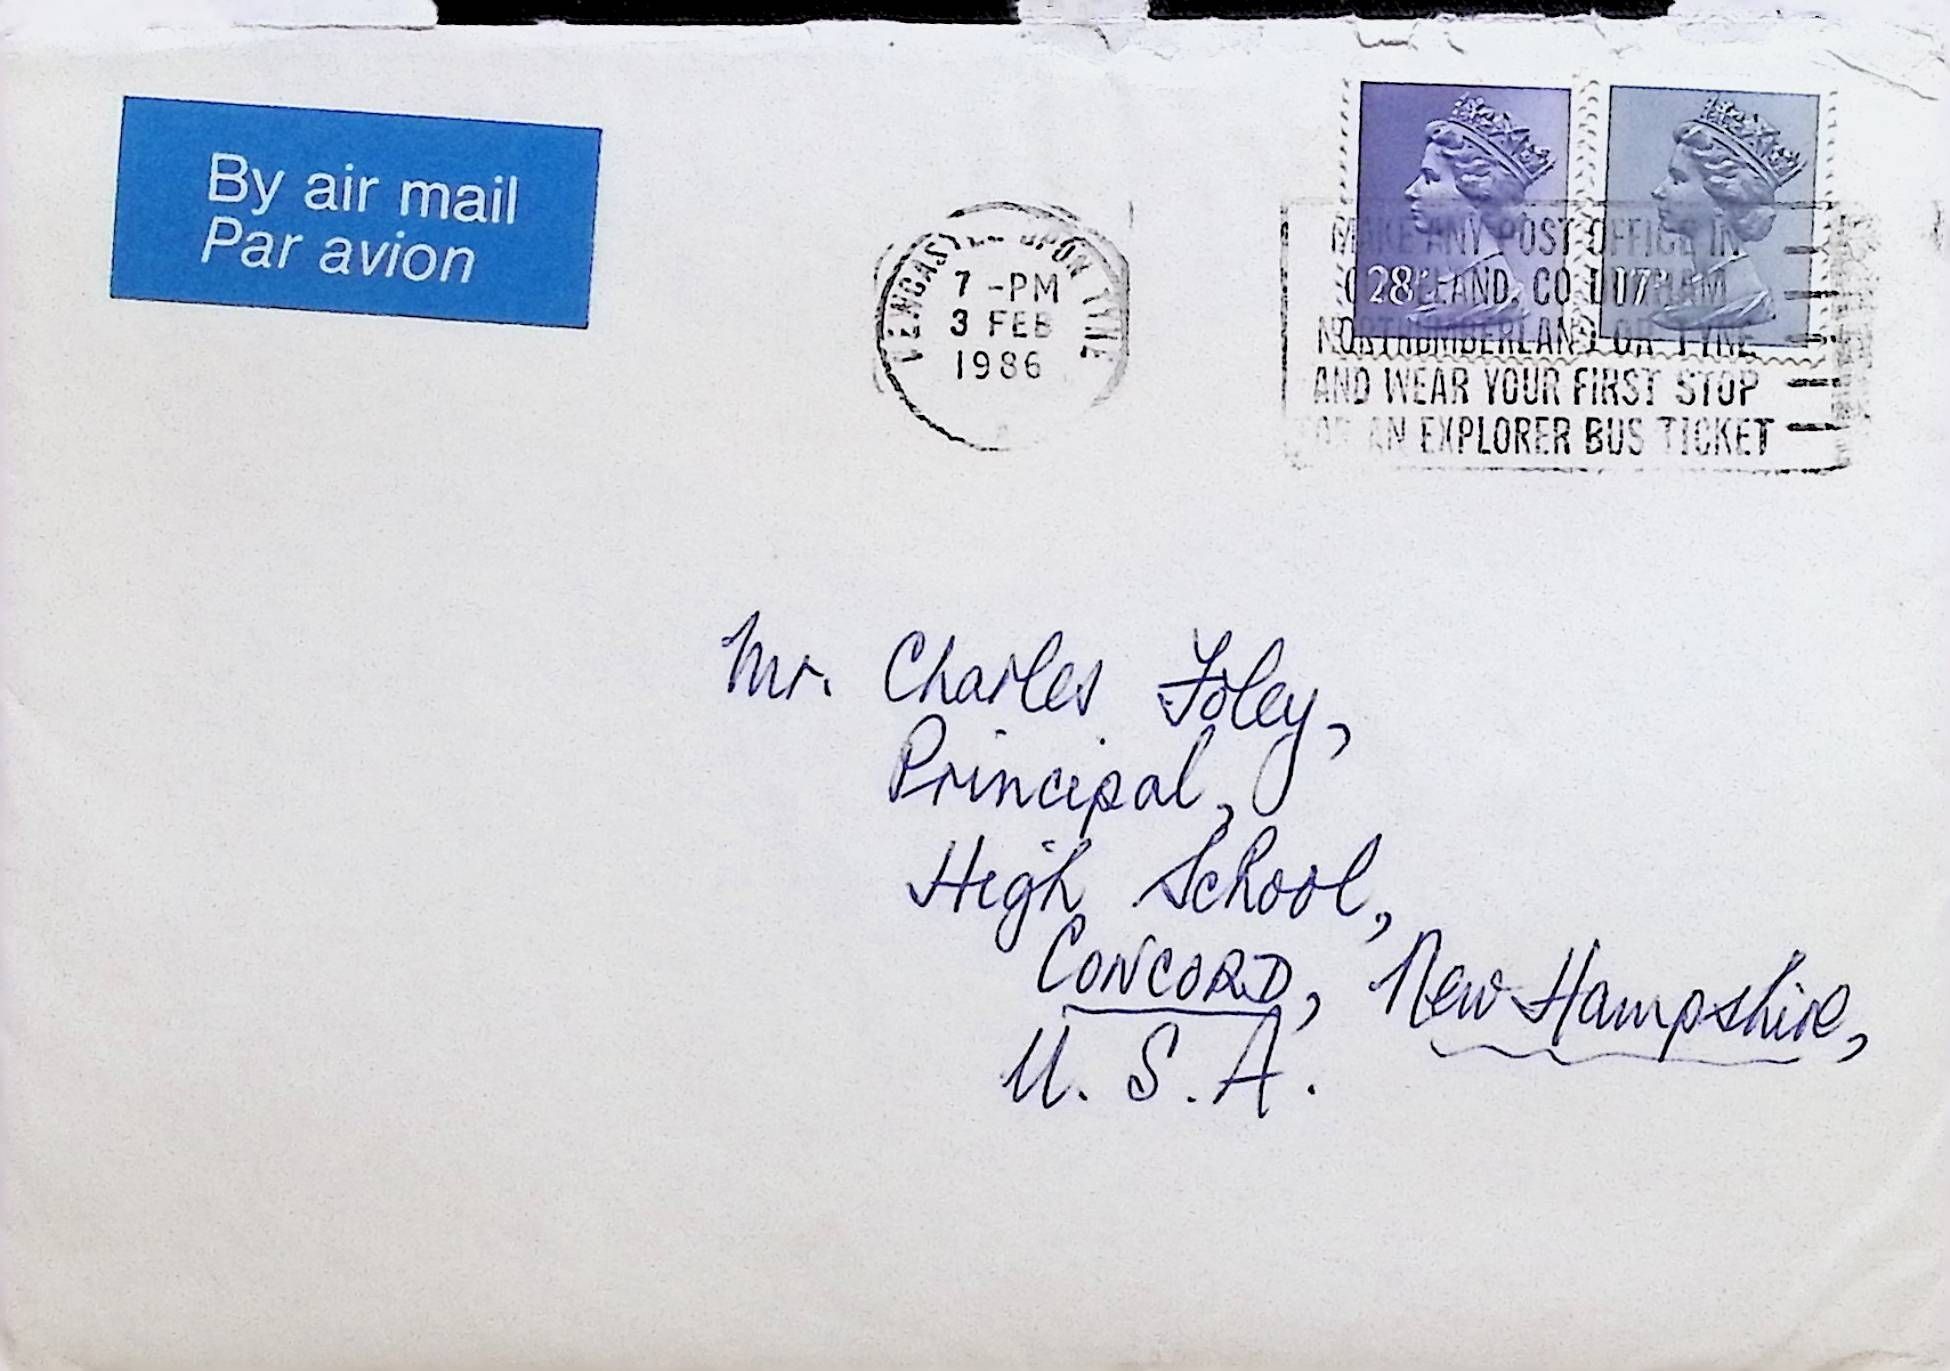 By air mail
Par avion
NEWCASTLE UPON TYNE
7 -PM
3 FEB
1986
28P
17P
MAKE ANY POST OFFICE IN
CO
NORTHUMBERLAND OR TYNE
AND WEAR YOUR FIRST STOP
FOR AN EXPLORER BUS TICKET
Mr. Charles Foley,
Principal,
High School,
CONCORD, New Hampshire,
U.S.A.